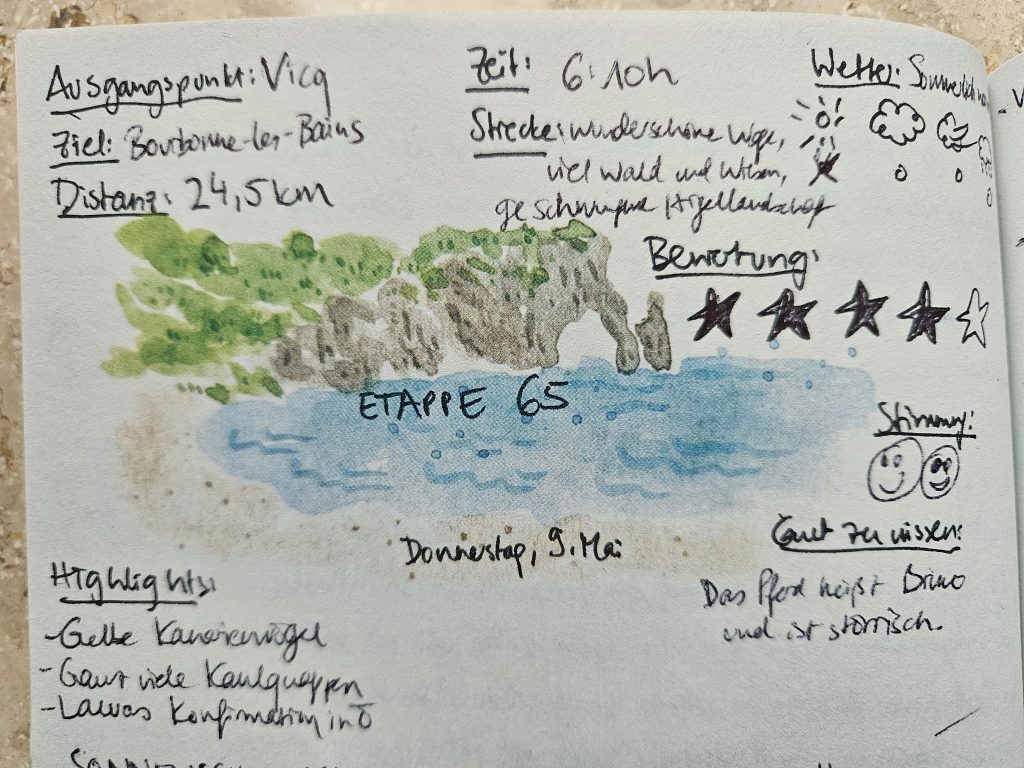 Ausgangspunkt: Vicq
Ziel: Bourbonne-les-Bains
Distanz: 24,5 km
Zeit: 6:10h
Strecke: wunderschöne Wege,
viel Wald und Wiesen,
geschwungene Hügellandschaft
Wetter: Sommerlich
Bewertung:
ETAPPE 65
Stimmung:
Donnerstag, 9. Mai
Gut zu wissen:
Das Pferd heißt Bruno
und ist störrisch.
Highlights:
- Gelbe Kanarienvögel
- Ganz viele Kaulquappen
- Konfirmation in Ö